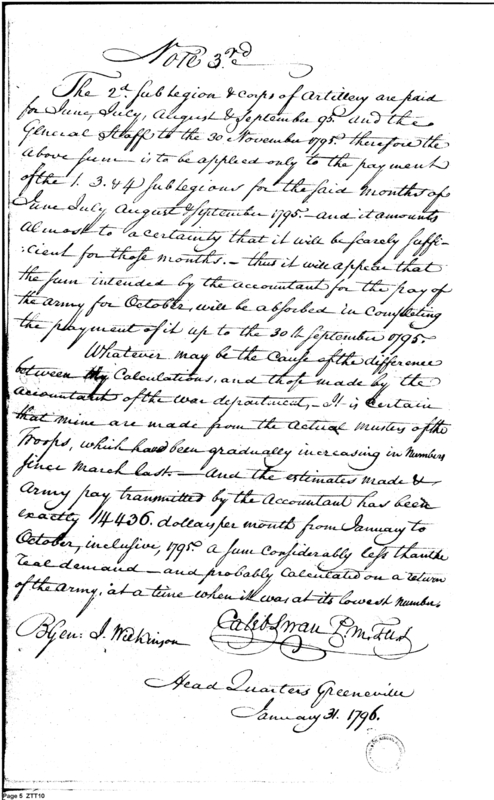 Note 3.rd
The 2.d Sub Legion & corps of Artillery are paid
for June, July, August & September 95. and the
General Staff to the 30 November 1795. therefore the
above sum - is to be applied only to the payment
of the 1. 3. & 4 Sub Legions for the said months of
June July August & September 1795 - and it amounts
almost to a certainty that it will be scarely suffi-
:cient for those months. - thus it will appear that
the sum intended by the accountant for the pay of
the army for October, will be absorbed in completing
the payment of it up to the 30th September 1795.
Whatever may be the Cause of the difference
between my Calculations, and those made by the
accountant of the war department, - It is certain
that mine are made from the actual musters of the
Troops, which have been gradually increasing in Numbers
since March last. - And the estimates made &
Army pay transmitted by the Accountant has been
exactly 14436. dollars per month from January to
October, inclusive, 1795. a sum considerably less than the
real demand - and probably calculated on a return
of the Army, at a time when it was at its lowest number.
BGen: J. Wilkinson
Caleb Swan P.M.TUS
Head Quarters Greeneville
January 31. 1796.
Page 5 ZTT10